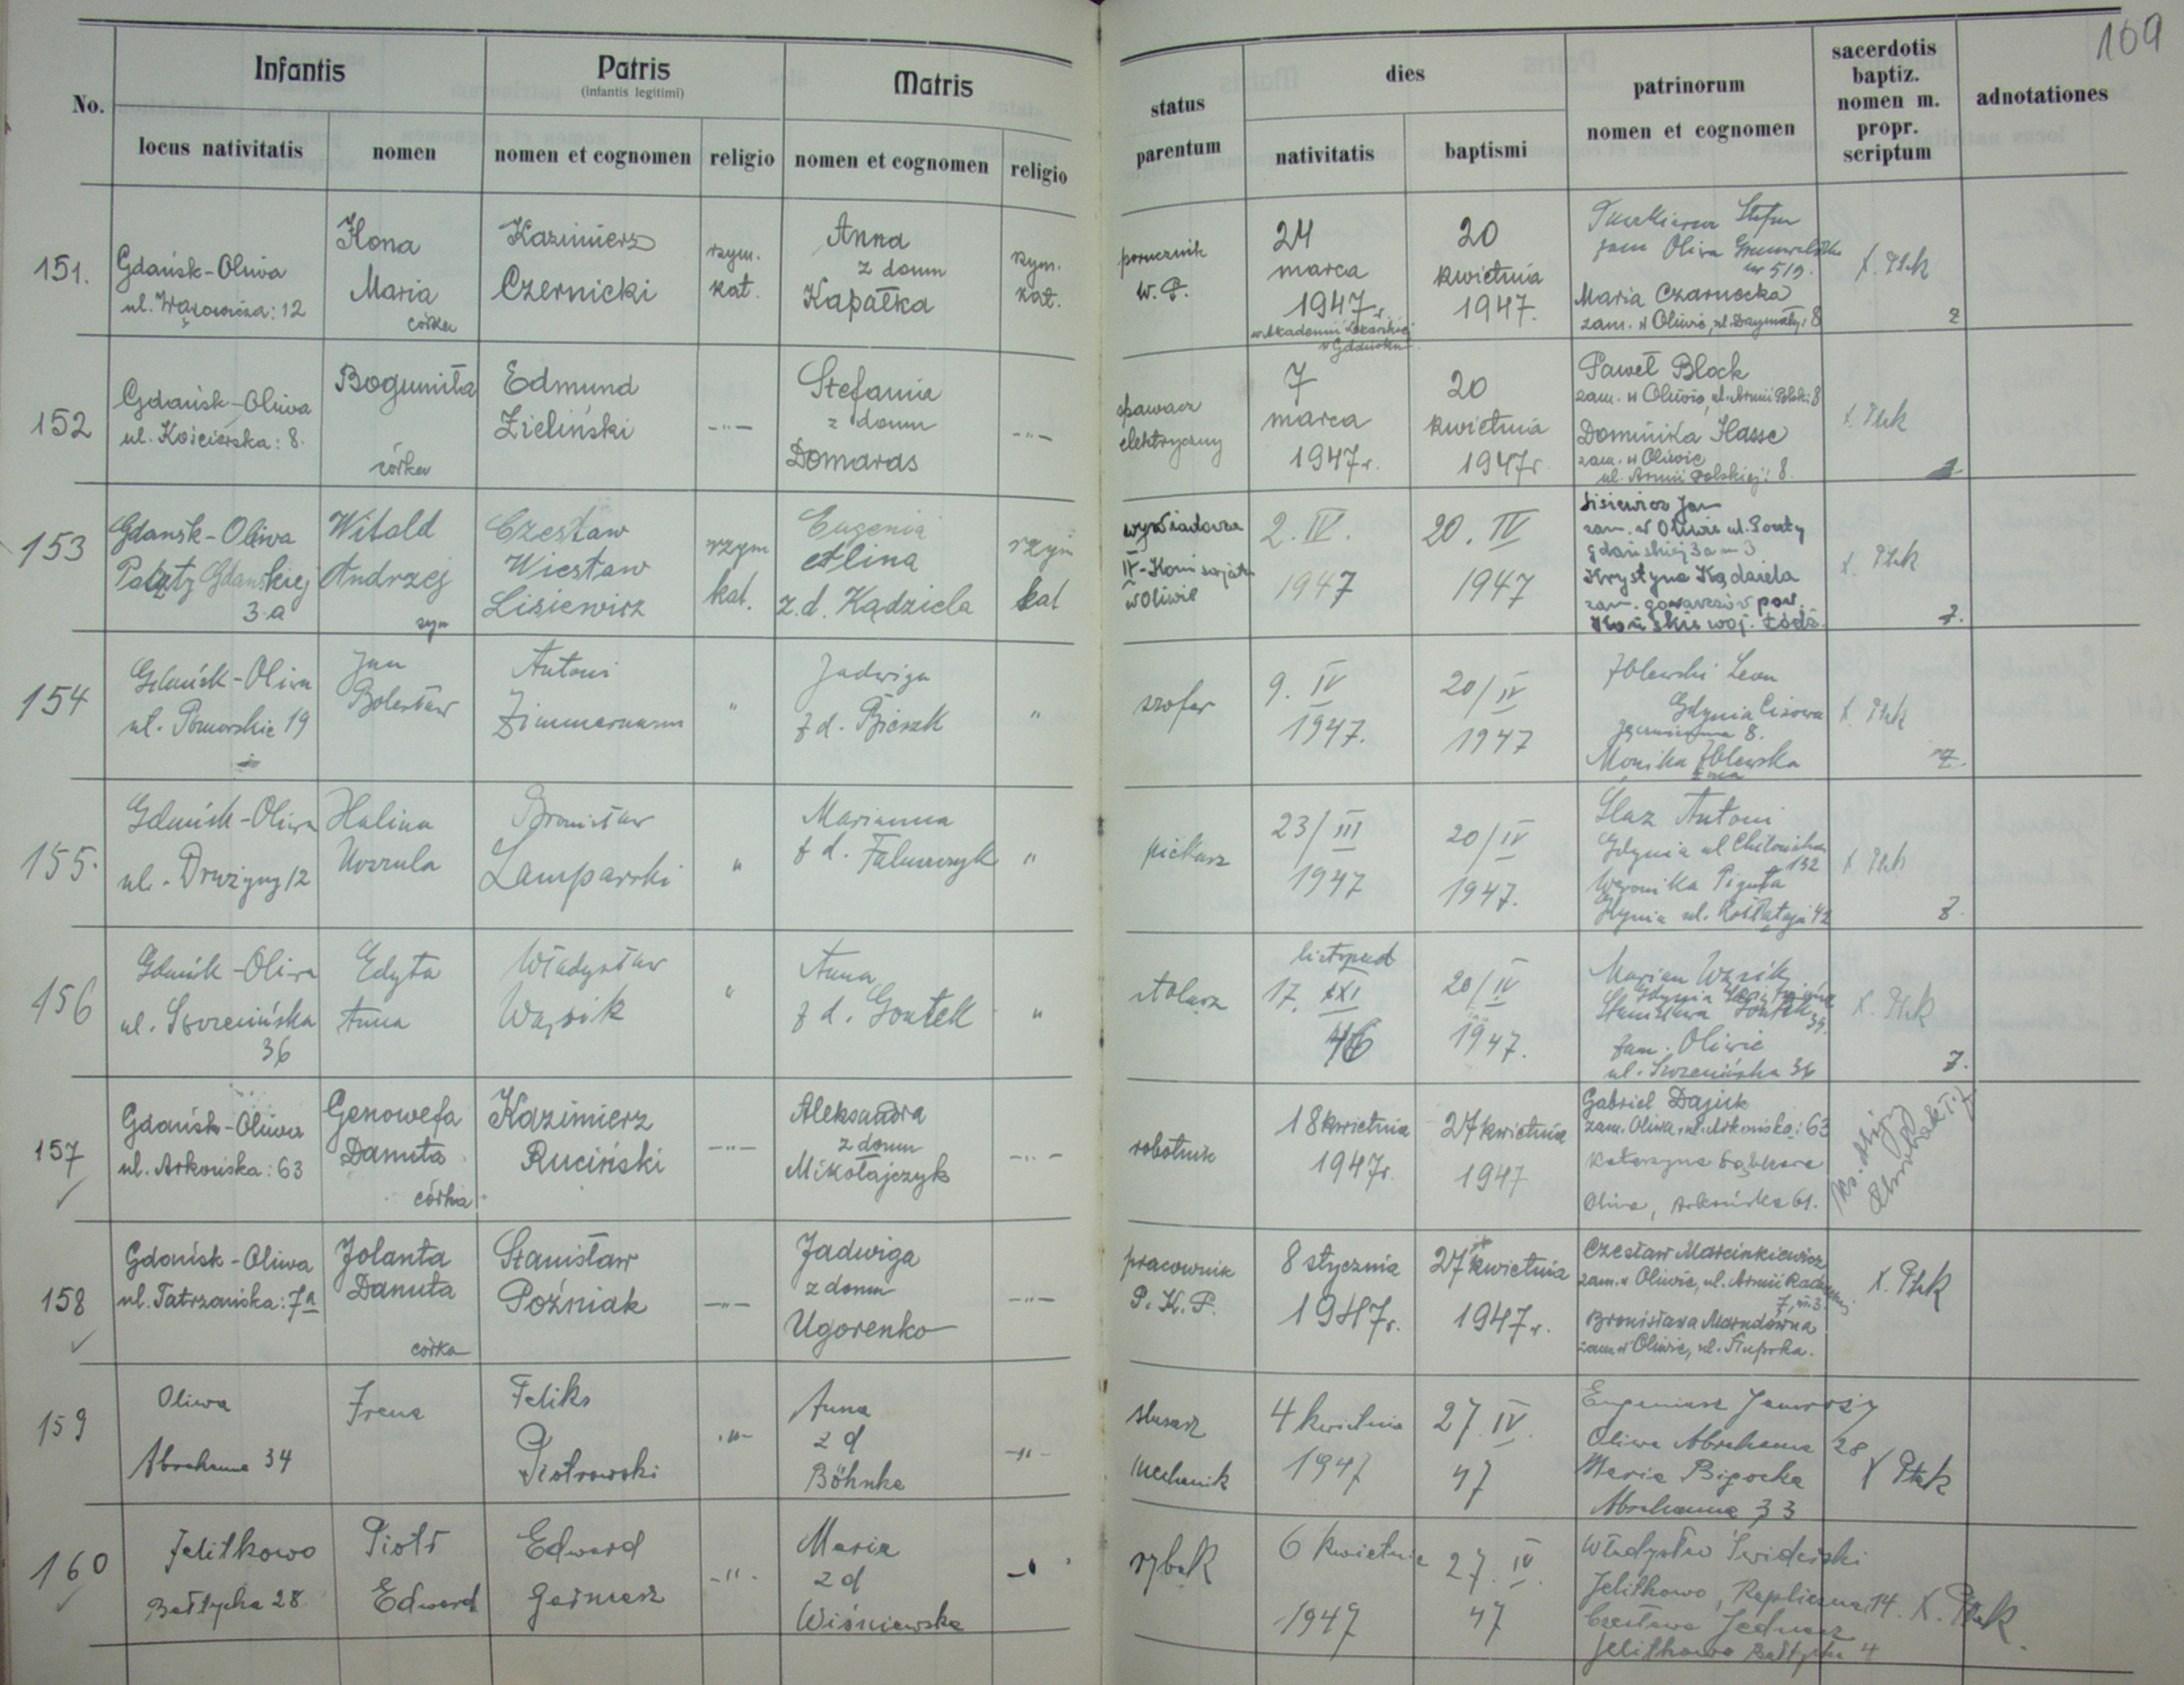 109
No.
Infantis
Patris
(infantis legitimi)
Matris
status
parentum
dies
patrinorum
nomen et cognomen
sacerdotis
baptiz.
nomen m.
propr.
scriptum
adnotationes
locus nativitatis
nomen
nomen et cognomen
religio
nomen et cognomen
religio
nativitatis
baptismi
151.
Gdańsk-Oliwa
ul. Wąsowicza: 12
Ilona
Maria
córka
Kazimierz
Czernicki
rzym.
kat.
Anna
z domu
Kapałka
rzym.
kat.
porucznik
W. P.
24
marca
1947r.
w Akademii Lekarskiej
w Gdańsku
20
kwietnia
1947.
Stefan
zam Oliwa Grunwaldzka
nr 519.
Maria Czarnocka
zam. w Oliwie, ul. Drzymały: 8
X. Ptak
2
152
Gdańsk-Oliwa
ul. Kościerska: 8.
Bogumiła
córka
Edmund
Zieliński
-"-
Stefania
z domu
Domaras
-"-
spawacz
elektryczny
7
marca
1947r.
20
kwietnia
1947r.
Paweł Block
zam. w Oliwie, ul. Armii Polski: 8
Dominika Hasse
zam. w Oliwie
ul. Armii Polskiej: 8.
X. Ptak
153
Gdansk-Oliwa
Poczty Gdanskiej
3a
Witold
Andrzej
syn
Czesław
Wiesław
Lisiewicz
rzym
kat.
Eugenia
Alina
z.d. Kądziela
rzym
kat
wywiadowca
IV-Komisarjatu
w Oliwie
2. IV.
1947
20. IV
1947
Lisiewicz Jan
zam. w Oliwie ul. Poczty
gdańskiej 3a m 3
Krystyna Kądziela
zam. gowarczów pow.
Końskie woj. Łódź.
X. Ptak
2.
154
Gdańsk-Oliwa
ul. Pomorskie 19
Jan
Bolesław
Antoni
Zimmermann
"
Jadwiga
z d.
"
szofer
9. IV
1947.
20/IV
1947
Zblewski Leon
Gdynia Cisowa
8.
Monika Zblewska
żona
X. Ptak
155.
Gdańsk-Oliwa
ul. Drużyny 12
Halina
Urszula
Bronisław
Lamparski
"
Marianna
z d.
"
piekarz
23/III
1947
20/IV
1947.
Antoni
Gdynia ul Chilońska
132
Weronika
Gdynia ul. Kołłątaja 42
X Ptak
156
Gdańsk-Oliwa
ul. Szczecińska
36
Edyta
Anna
Władysław
Wąsik
"
Anna
z d. Gontek
"
stolarz
listopad
17. XI
46
20/IV
1947.
Marian Wąsik
Gdynia
Stanisława Gontek
zam. Oliwie
ul. Szczecińska 36
X. Ptak
157
Gdańsk-Oliwa
ul. Arkońska: 63
Genowefa
Danuta
córka
Kazimierz
Ruciński
-"-
Aleksandra
z domu
Mikołajczyk
-"-
robotnik
18 kwietnia
1947r.
27 kwietnia
1947
Gabriel Dajuk
zam. Oliwa, ul. Arkońska: 63
Katarzyna
Oliwa, Arkońska 61.
Ks.
158
Gdańsk-Oliwa
ul. Tatrzańska: 7a
Jolanta
Danuta
córka
Stanisław
Poźniak
-"-
Jadwiga
z domu
Ugorenko
-"-
pracownik
P. K. P.
8 stycznia
1947r.
27 kwietnia
1947r.
Czesław Marcinkiewicz
zam. w Oliwie, ul. Armii Radzieckiej
7, m. 3.
Bronisława
zam w Oliwie, ul. Słupska.
X. Ptak
159
Oliwa
Abrahama 34
Irena
Feliks
Piotrowski
-"-
Anna
z d
Böhnke
-"-
ślusarz
mechanik
4 kwietnia
1947
27. IV.
47
Eugeniusz
Oliwa Abrahama 28
Maria
Abrahama 33
X Ptak
160
Jelitkowo
Bałtycka 28.
Piotr
Edward
Edward
-"-
Maria
z d
Wiśniewska
rybak
6 kwietnia
1947
27. IV.
47
Władysław Świderski
Jelitkowo, Kapliczna, 14.
Czesława
Jelitkowo Bałtycka 4
X. Ptak.